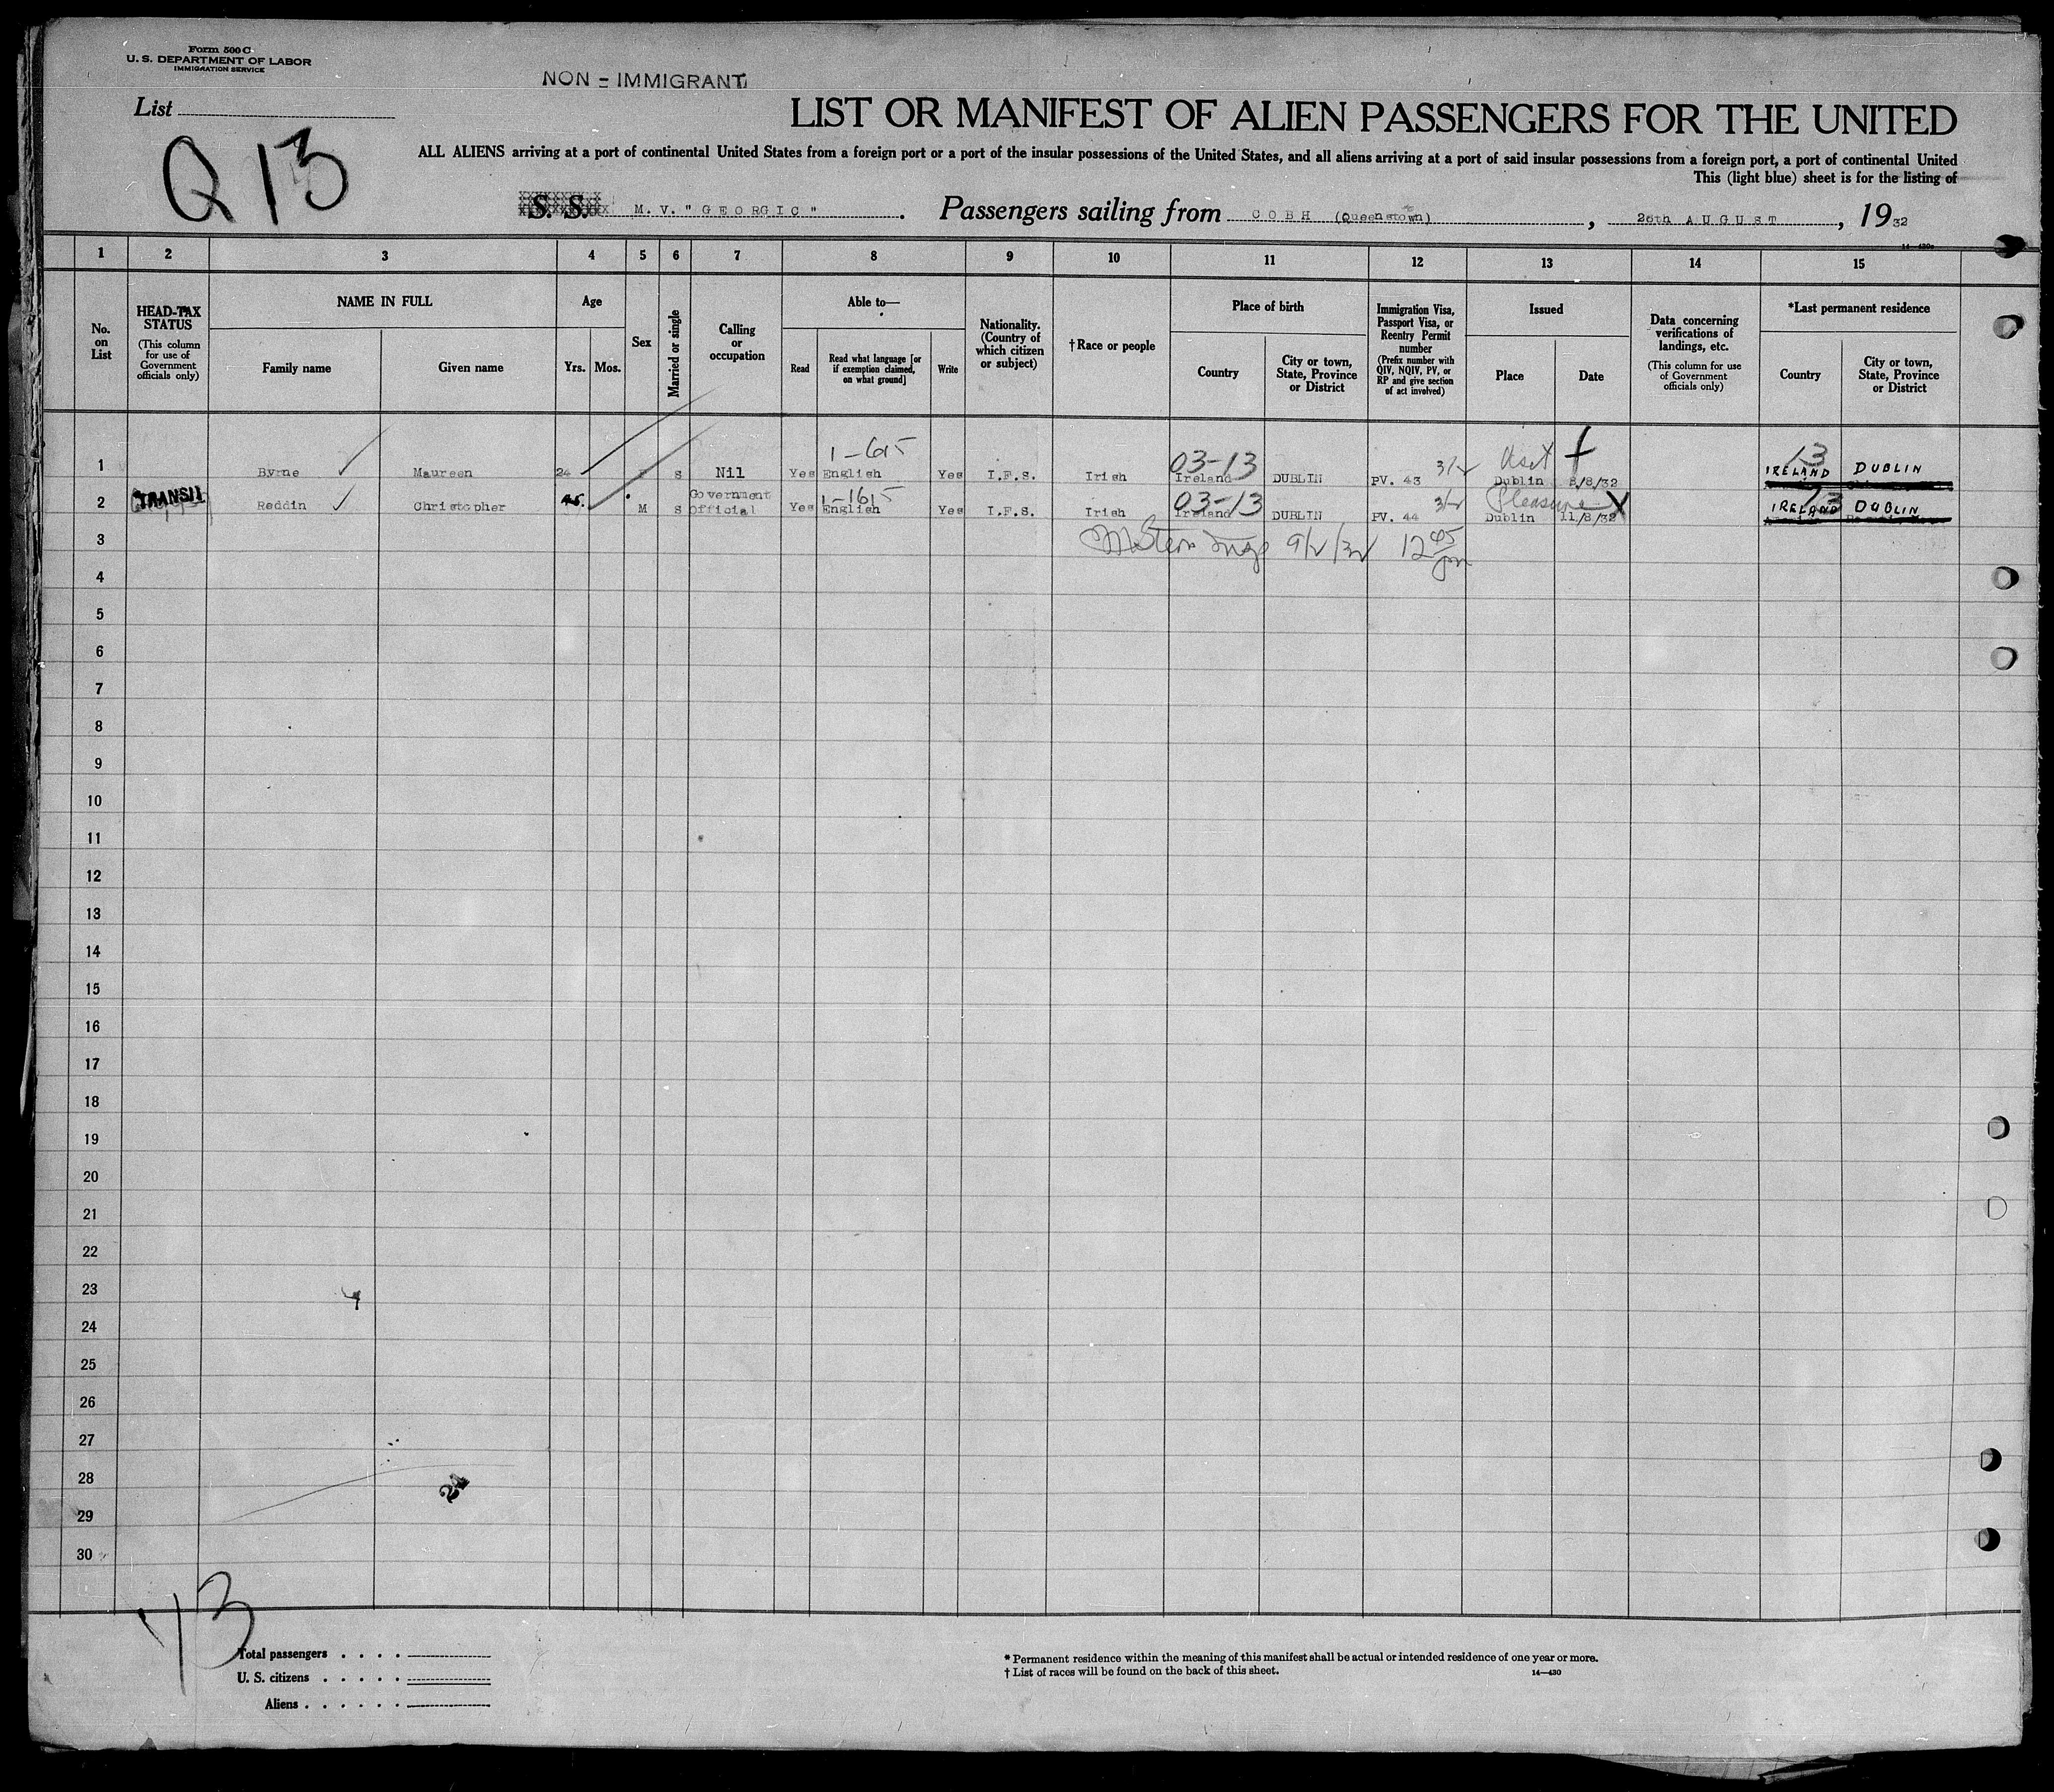 Form 500 C
U. S. DEPARTMENT OF LABOR
IMMIGRATION SERVICE
NON - IMMIGRANT
List
Q 13
LIST OR MANIFEST OF ALIEN PASSENGERS FOR THE UNITED
ALL ALIENS arriving at a port of continental United States from a foreign port or a port of the insular possessions of the United States, and all aliens arriving at a port of said insular possessions from a foreign port, a port of continental United
This (light blue) sheet is for the listing of
S. S. M. V. "GEORGIC". Passengers sailing from COBH (Queenstown), 26th AUGUST, 1932
14—430c
1 2 3 4 5 6 7 8 9 10 11 12 13 14 15
No. on List
HEAD-TAX STATUS
(This column for use of Government officials only)
NAME IN FULL
Family name Given name
Age
Yrs. Mos.
Sex
Married or single
Calling or occupation
Able to—
Read
Read what language [or if exemption claimed, on what ground]
Write
Nationality. (Country of which citizen or subject)
†Race or people
Place of birth
Country
City or town, State, Province or District
Immigration Visa, Passport Visa, or Reentry Permit number
(Prefix number with QIV, NQIV, PV, or RP and give section of act involved)
Issued
Place Date
Data concerning verifications of landings, etc.
(This column for use of Government officials only)
*Last permanent residence
Country
City or town, State, Province or District
1-615 03-13 3/2 Visit 13
1 Byrne Maureen 24 F S Nil Yes English Yes I.F.S. Irish Ireland DUBLIN PV. 43 Dublin 8/8/32 IRELAND DUBLIN
1-1615 03-13 3/2 Pleasure 13
2 TRANSIT Reddin Christopher 45 M S Government Official Yes English Yes I.F.S. Irish Ireland DUBLIN PV. 44 Dublin 11/8/32 IRELAND DUBLIN
3 9/2/32 12 45 pm
4
5
6
7
8
9
10
11
12
13
14
15
16
17
18
19
20
21
22
23
24
25
26
27
28
29
30
24
13
Total passengers
U. S. citizens
Aliens
* Permanent residence within the meaning of this manifest shall be actual or intended residence of one year or more.
† List of races will be found on the back of this sheet.
14—430